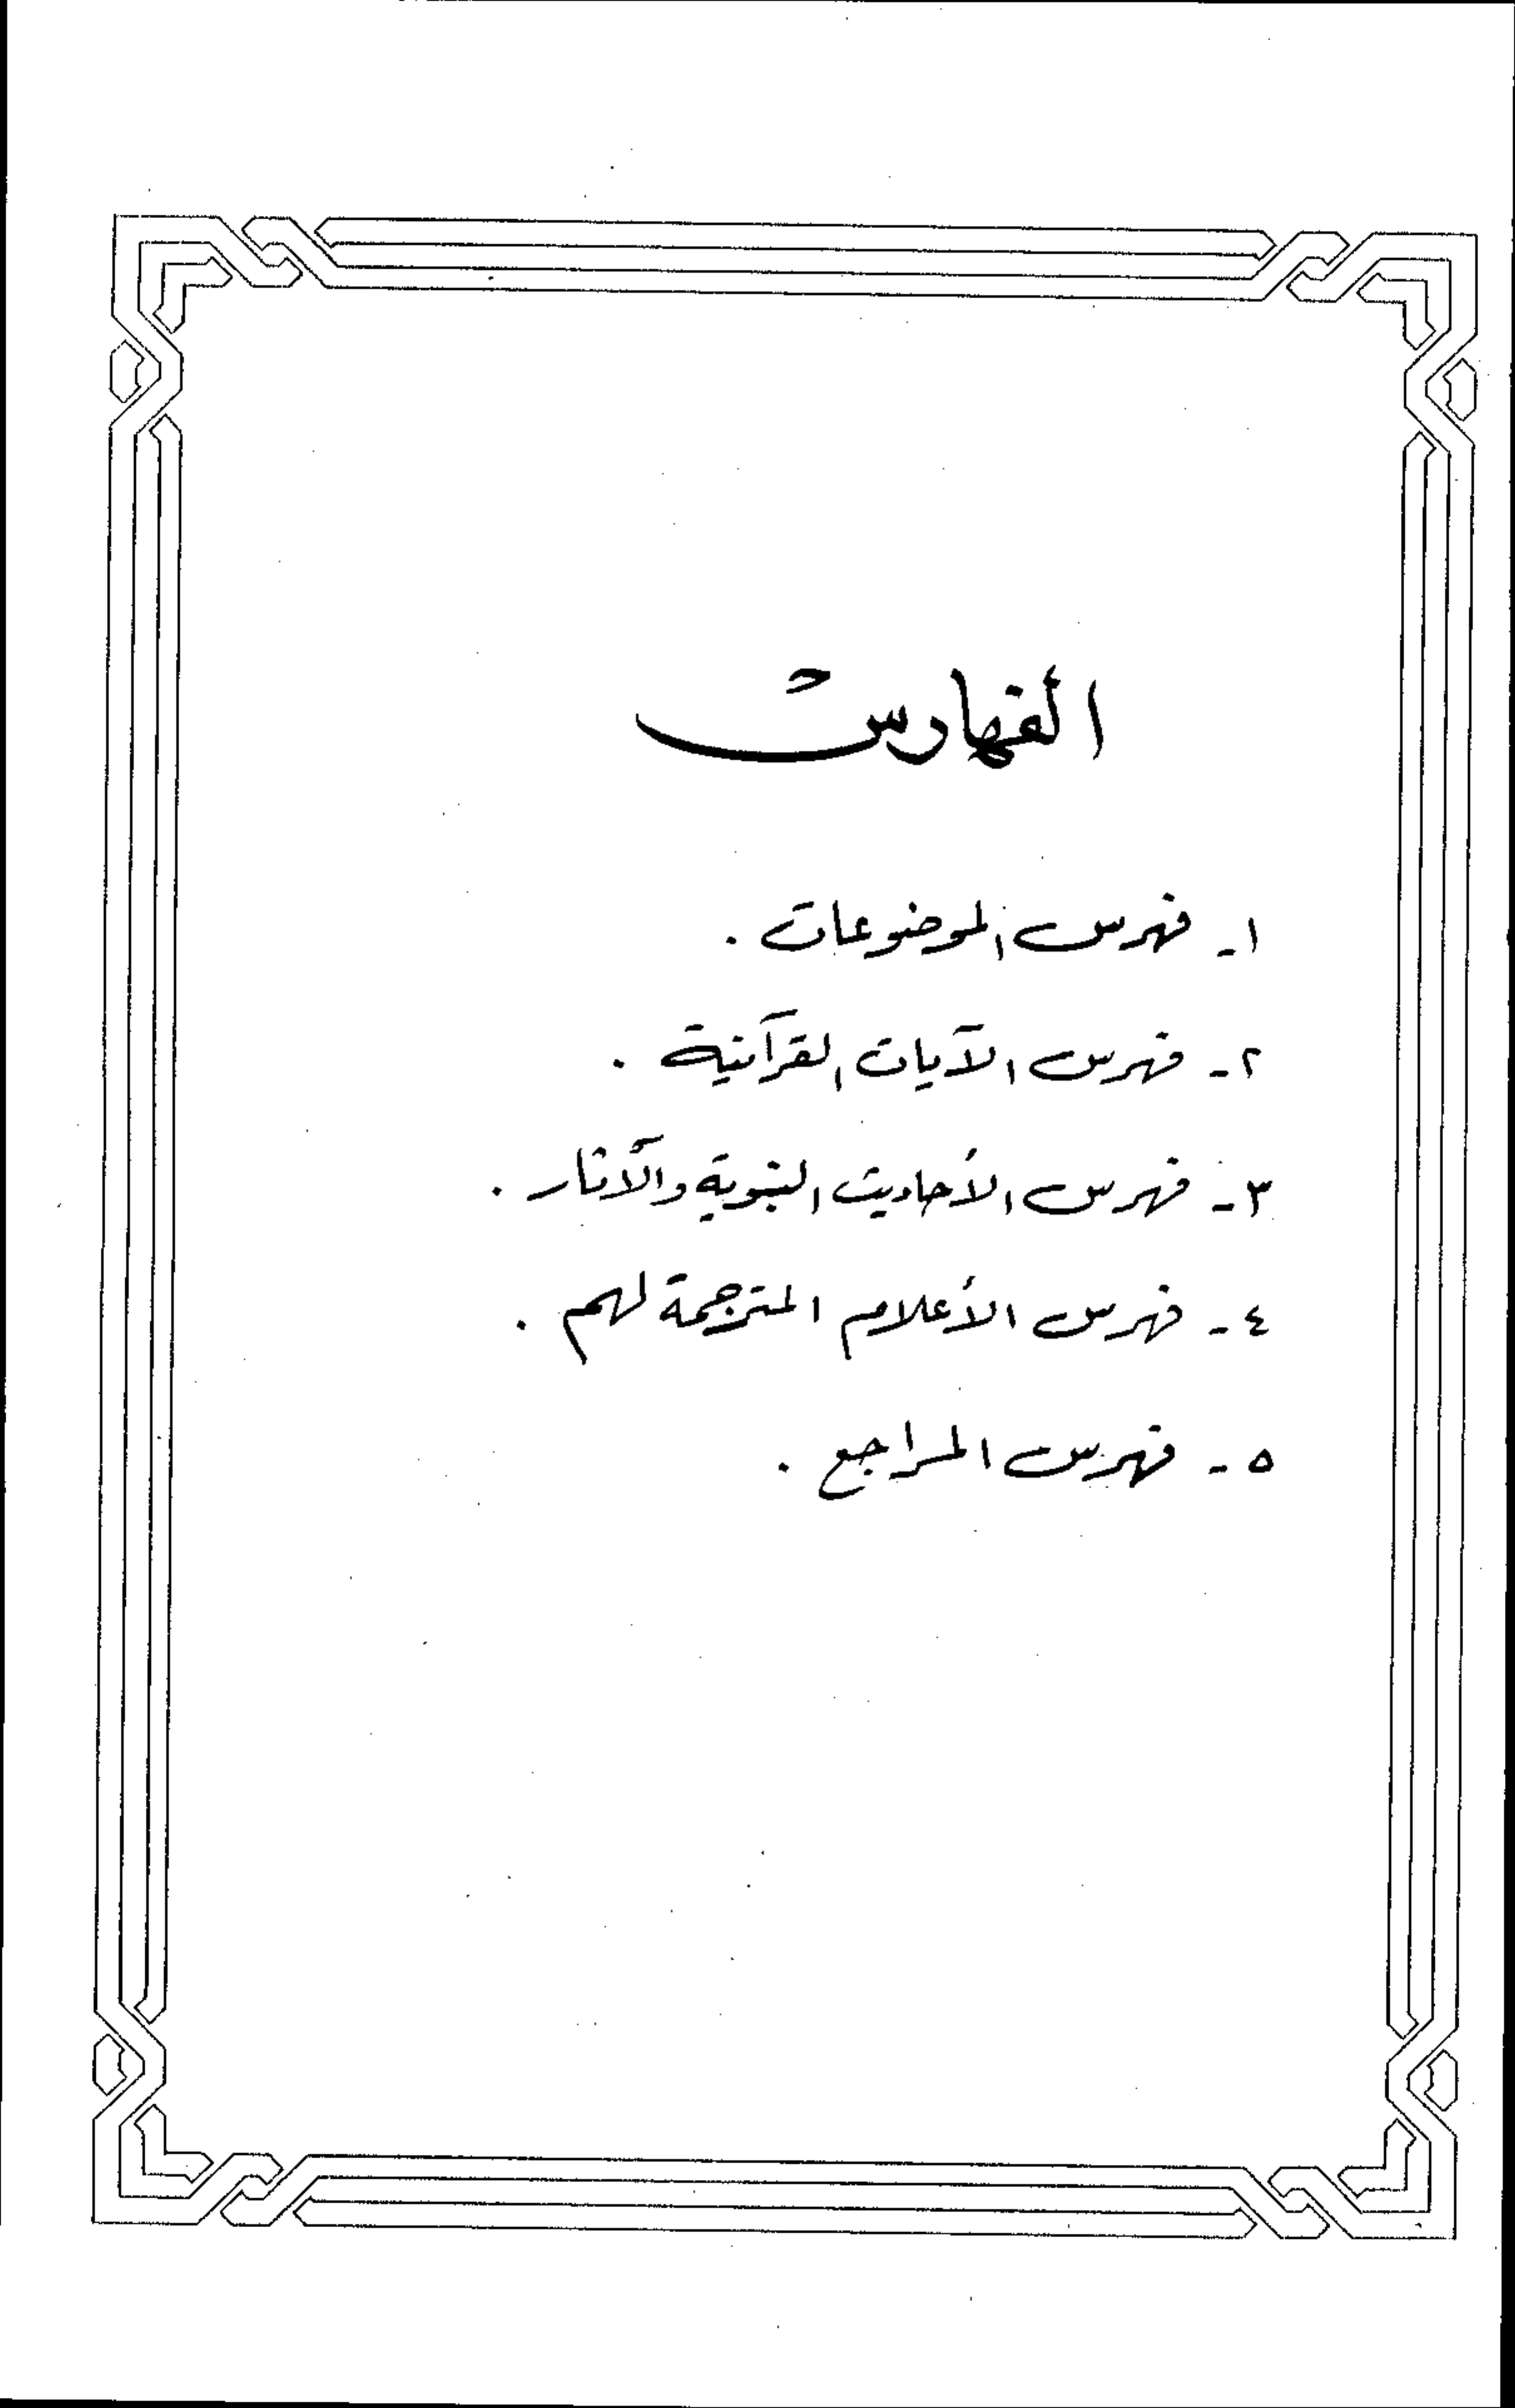 الفهارس
١- فهرس الموضوعات .
٢- فهرس الآيات القرآنية .
٣- فهرس الأحاديث النبوية والآثار .
٤- فهرس الأعلام المترجمة لهم .
٥- فهرس المراجع .